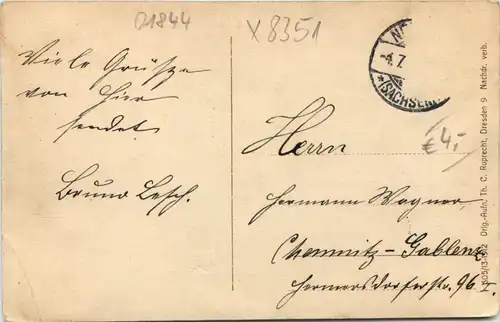 01844
X 8351
4.7
*(SACHSEN)
Viele Grüsse
von hier
sendet
Bruno Lesch.
Herrn
€ 4,-
Hermann Wagner
Chemnitz-Gablenz
Hermersdorferstr. 96.
Orig.-Aufn. Th. C. Ruprecht, Dresden 9 Nachdr. verb.